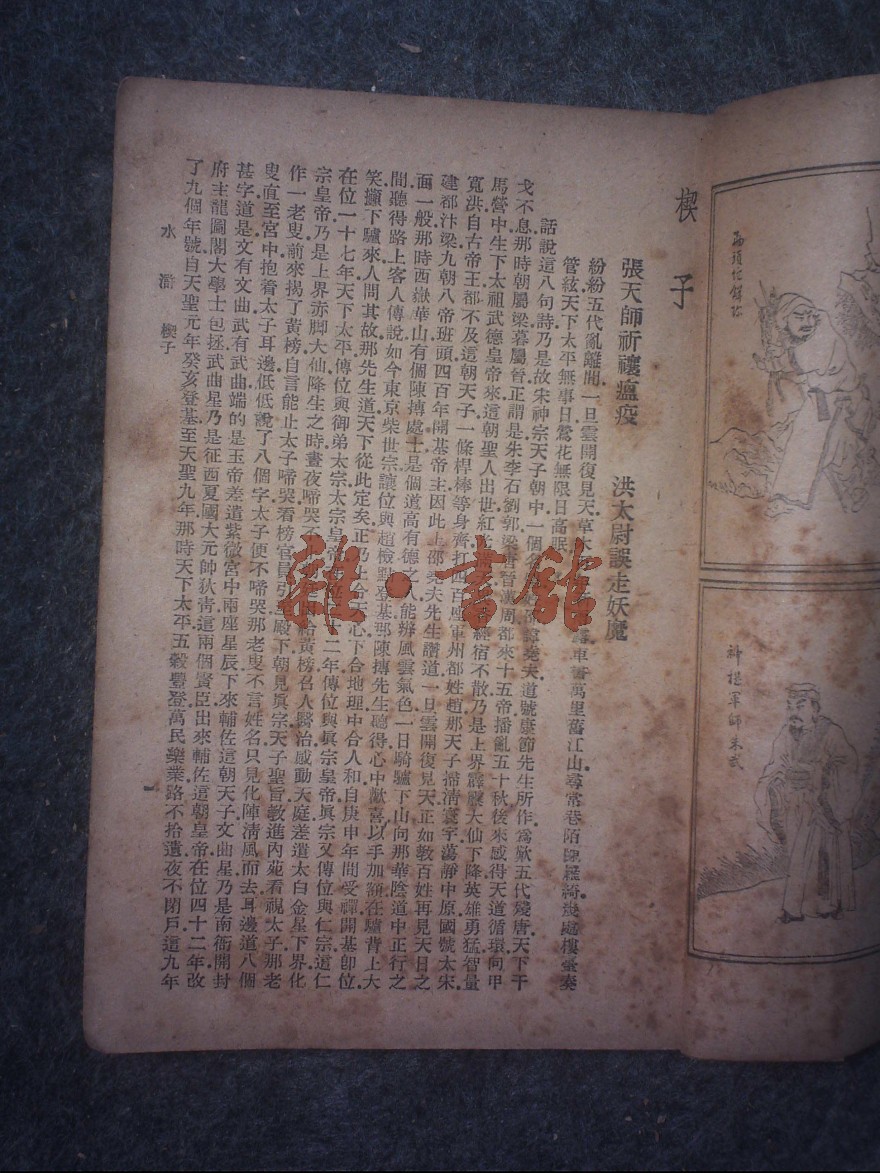 兩頭蛇解珍
神機軍師朱武
楔子
張天師祈禳瘟疫 洪太尉誤走妖魔
紛紛五代亂離間一旦雲開復見天草木車書萬里舊江山尋常巷陌陳羅綺幾處樓臺奏
管絃天下太平無事日鶯花無限日高眠
話說這八句詩乃是故宋神宗天子朝中一個名堯夫道號康節先生所作爲歎五代殘唐天下干
戈不息那時朝屬梁暮屬晉正謂是朱李石劉郭梁唐晉漢周都來十五帝播亂五十秋後來感得天道循環向甲
馬營中生下太祖武德皇帝來這朝聖人出世紅經宿不散乃是上界霹靂大仙下降英雄勇猛智量
寬洪自古帝王都不及這朝天子一條桿棒等身齊打四百座軍州都姓趙那天子掃清寰宇蕩靜中原國號大宋
建都汴梁九朝八帝班頭四百年開基帝主因此上邵堯夫先生讚道一旦雲開復見天正如教百姓再見天日之
面一般那時西嶽華山有個陳摶處士是個道高有德之人能辨風雲氣色一日騎驢下山向那華陰道中正行之
間聽得路上客人傳說如今東京柴世宗讓位與趙檢點登基那陳摶先生聽得心中歡喜以手加額在驢背上大
笑攧下驢來人問其故那先生道天下從此定矣正乃上合天心下合地理中合人和自庚申年間受禪開基卽位
在位一十七年天下太平傳位與御弟太宗太宗皇帝在位二十二年傳位與眞宗皇帝眞宗又傳位與仁宗這仁
宗皇帝乃是上界赤脚大仙降生之時晝夜啼哭不給黃榜召人醫治感動天庭差遣太白金星下界化
作一老叟前來揭了黃榜自言能止太子啼哭看榜官員引至殿下朝見眞宗天子聖旨敎進內苑看視太子那老
叟直至宮中抱着太子耳邊低低說了八個字太子便不啼哭那老叟不言姓名只見化陣清風而去耳邊道八個
甚字道是文有文曲武有武曲端的是玉帝差遣紫微宮中兩座星辰下來輔佐這朝天子文曲星乃是南衙開封
府主龍圖閣大學士包拯武曲星乃是征西夏國大元帥狄靑這兩個賢臣出來輔佐這朝皇帝在位四十二年改
了九個年號自天聖元年癸亥登基至天聖九年那時天下太平五穀豐登萬民樂業路不拾遺夜不閉戶這九年
水滸 楔子
雜·書館